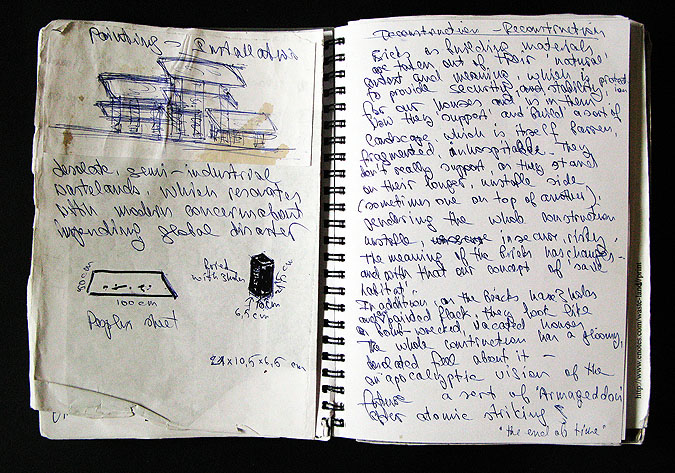 Painting - Installation
desolate, semi-industrial
wastelands, which resonates
with modern concerns about
impending global disaster
50 cm
100 cm
fired
with 3 holes
10 cm
6,5 cm
sheet
21 x 10,5 x 6,5 cm
Deconstruction - Reconstruction
Bricks as building materials
are taken out of their 'natural'
context and meaning, which is
to provide security and stability, protection
for our houses and us in them
Now they 'support' and 'build' a sort of
landscape which is itself barren,
fragmented, inhospitable. They
don't really support, as they stand
on their longer, unstable side
(sometimes one on top of another),
rendering the whole construction
unstable, insecure, risky.
The meaning of the bricks has changed -
and with that our concept of safe
'habitat'.
In addition, as the bricks have 3 holes
and painted black, they look like
bomb-wrecked, vacated houses
The whole construction has a gloomy,
desolated feel about it -
an apocalyptic vision of the
future a sort of 'Armageddon'
after atomic striking
"the end of time"